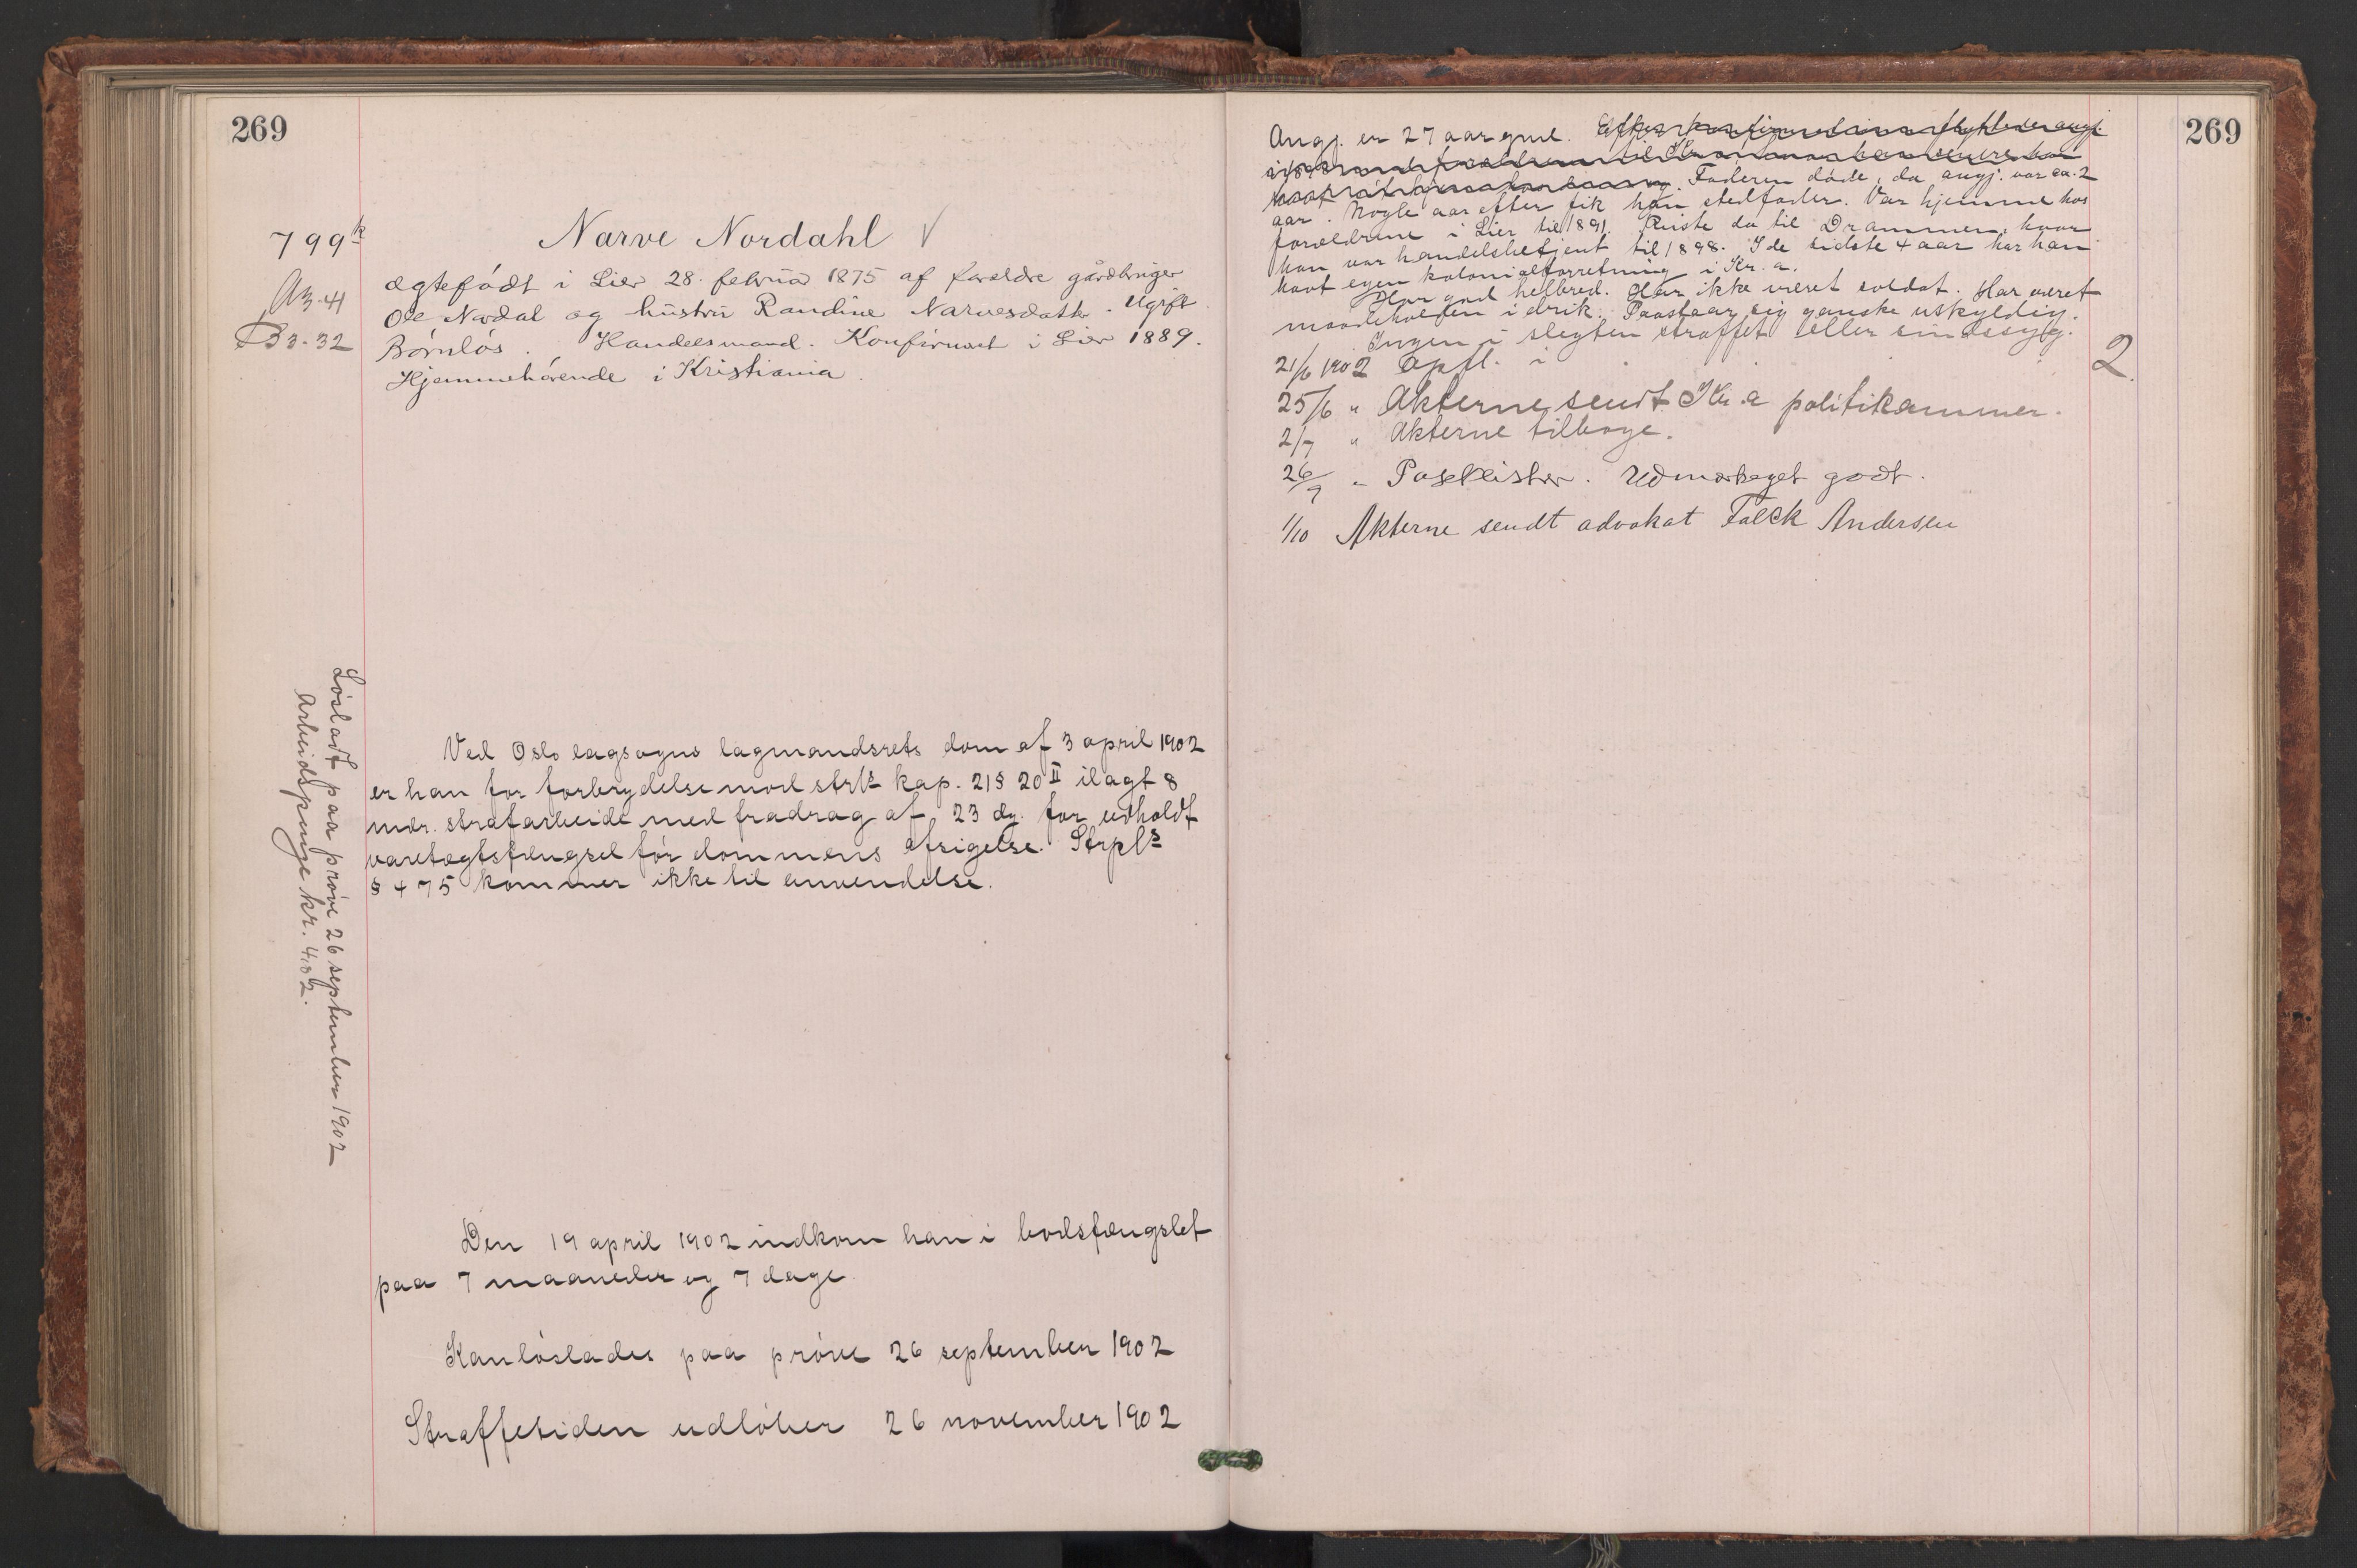 269
799k
A3.41
B3.32
Narve Nordahl ✓
ægtefødt i Lier 28. februar 1875 af forældre gårdbruger
Ole Nordal og hustru Randine Narvesdatter. Ugift
Børnløs. Handelsmand. Konfirmert i Lier 1889.
Hjemmehørende i Kristiania.
Ved Oslo lagsogns lagmandsrets dom af 3 april 1902
er han for forbrydelse mod strls kap. 21 § 20 II ilagt 8
mdr. strafarbeide med fradrag af 23 dg. for udholdt
varetægtsfængsel før dommens afsigelse. Strpls
§ 475 kommer ikke til anvendelse.
Løsladt paa prøve 26 september 1902
Arbeidspenge kr. 4,82.
Den 19 april 1902 indkom han i bodsfængslet
paa 7 maaneder og 7 dage
Kan løslades paa prøve 26 september 1902
Straffetiden udløber 26 november 1902
269
Angj. er 27 aar gml. Efter konfirmationen flyttede angj.
Faderen døde, da angj. var ca. 2
aar. Nogle aar efter fik han stedfader. Var hjemme hos
forældrene i Lier til 1891. Reiste da til Drammen, hvor
han var handelsbetjent til 1898. I de sidste 4 aar har han
havt egen kolonialforretning i Kr.a.
Har god helbred. Har ikke været soldat. Har været
maadeholden i drik. Paastaar sig ganske uskyldig.
Ingen i slegten straffet eller sindssyg.
21/6 1902 Opfl. i
2.
25/6 " Akterne sendt Kr.a politikammer.
2/7 " Akterne tilbage.
26/9 " Udmerkeget godt.
1/10 Akterne sendt advokat Falck Andersen